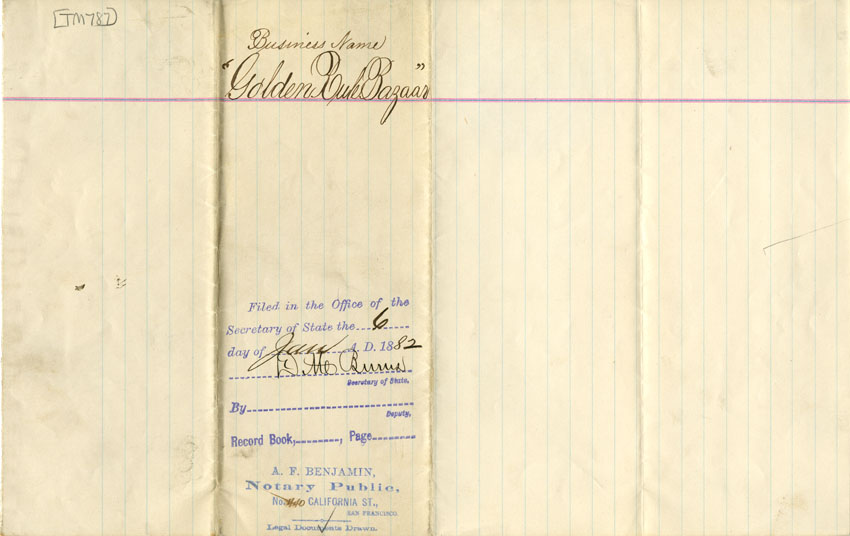 [TM787]
Business Name
"Golden Rule Bazaar"
Filed in the Office of the
Secretary of State the 6
day of Jany A. D. 1882
D. M. Burns
Secretary of State,
By
Deputy,
Record Book, , Page
A. F. BENJAMIN,
Notary Public,
No. CALIFORNIA ST.,
SAN FRANCISCO.
Legal Documents Drawn.